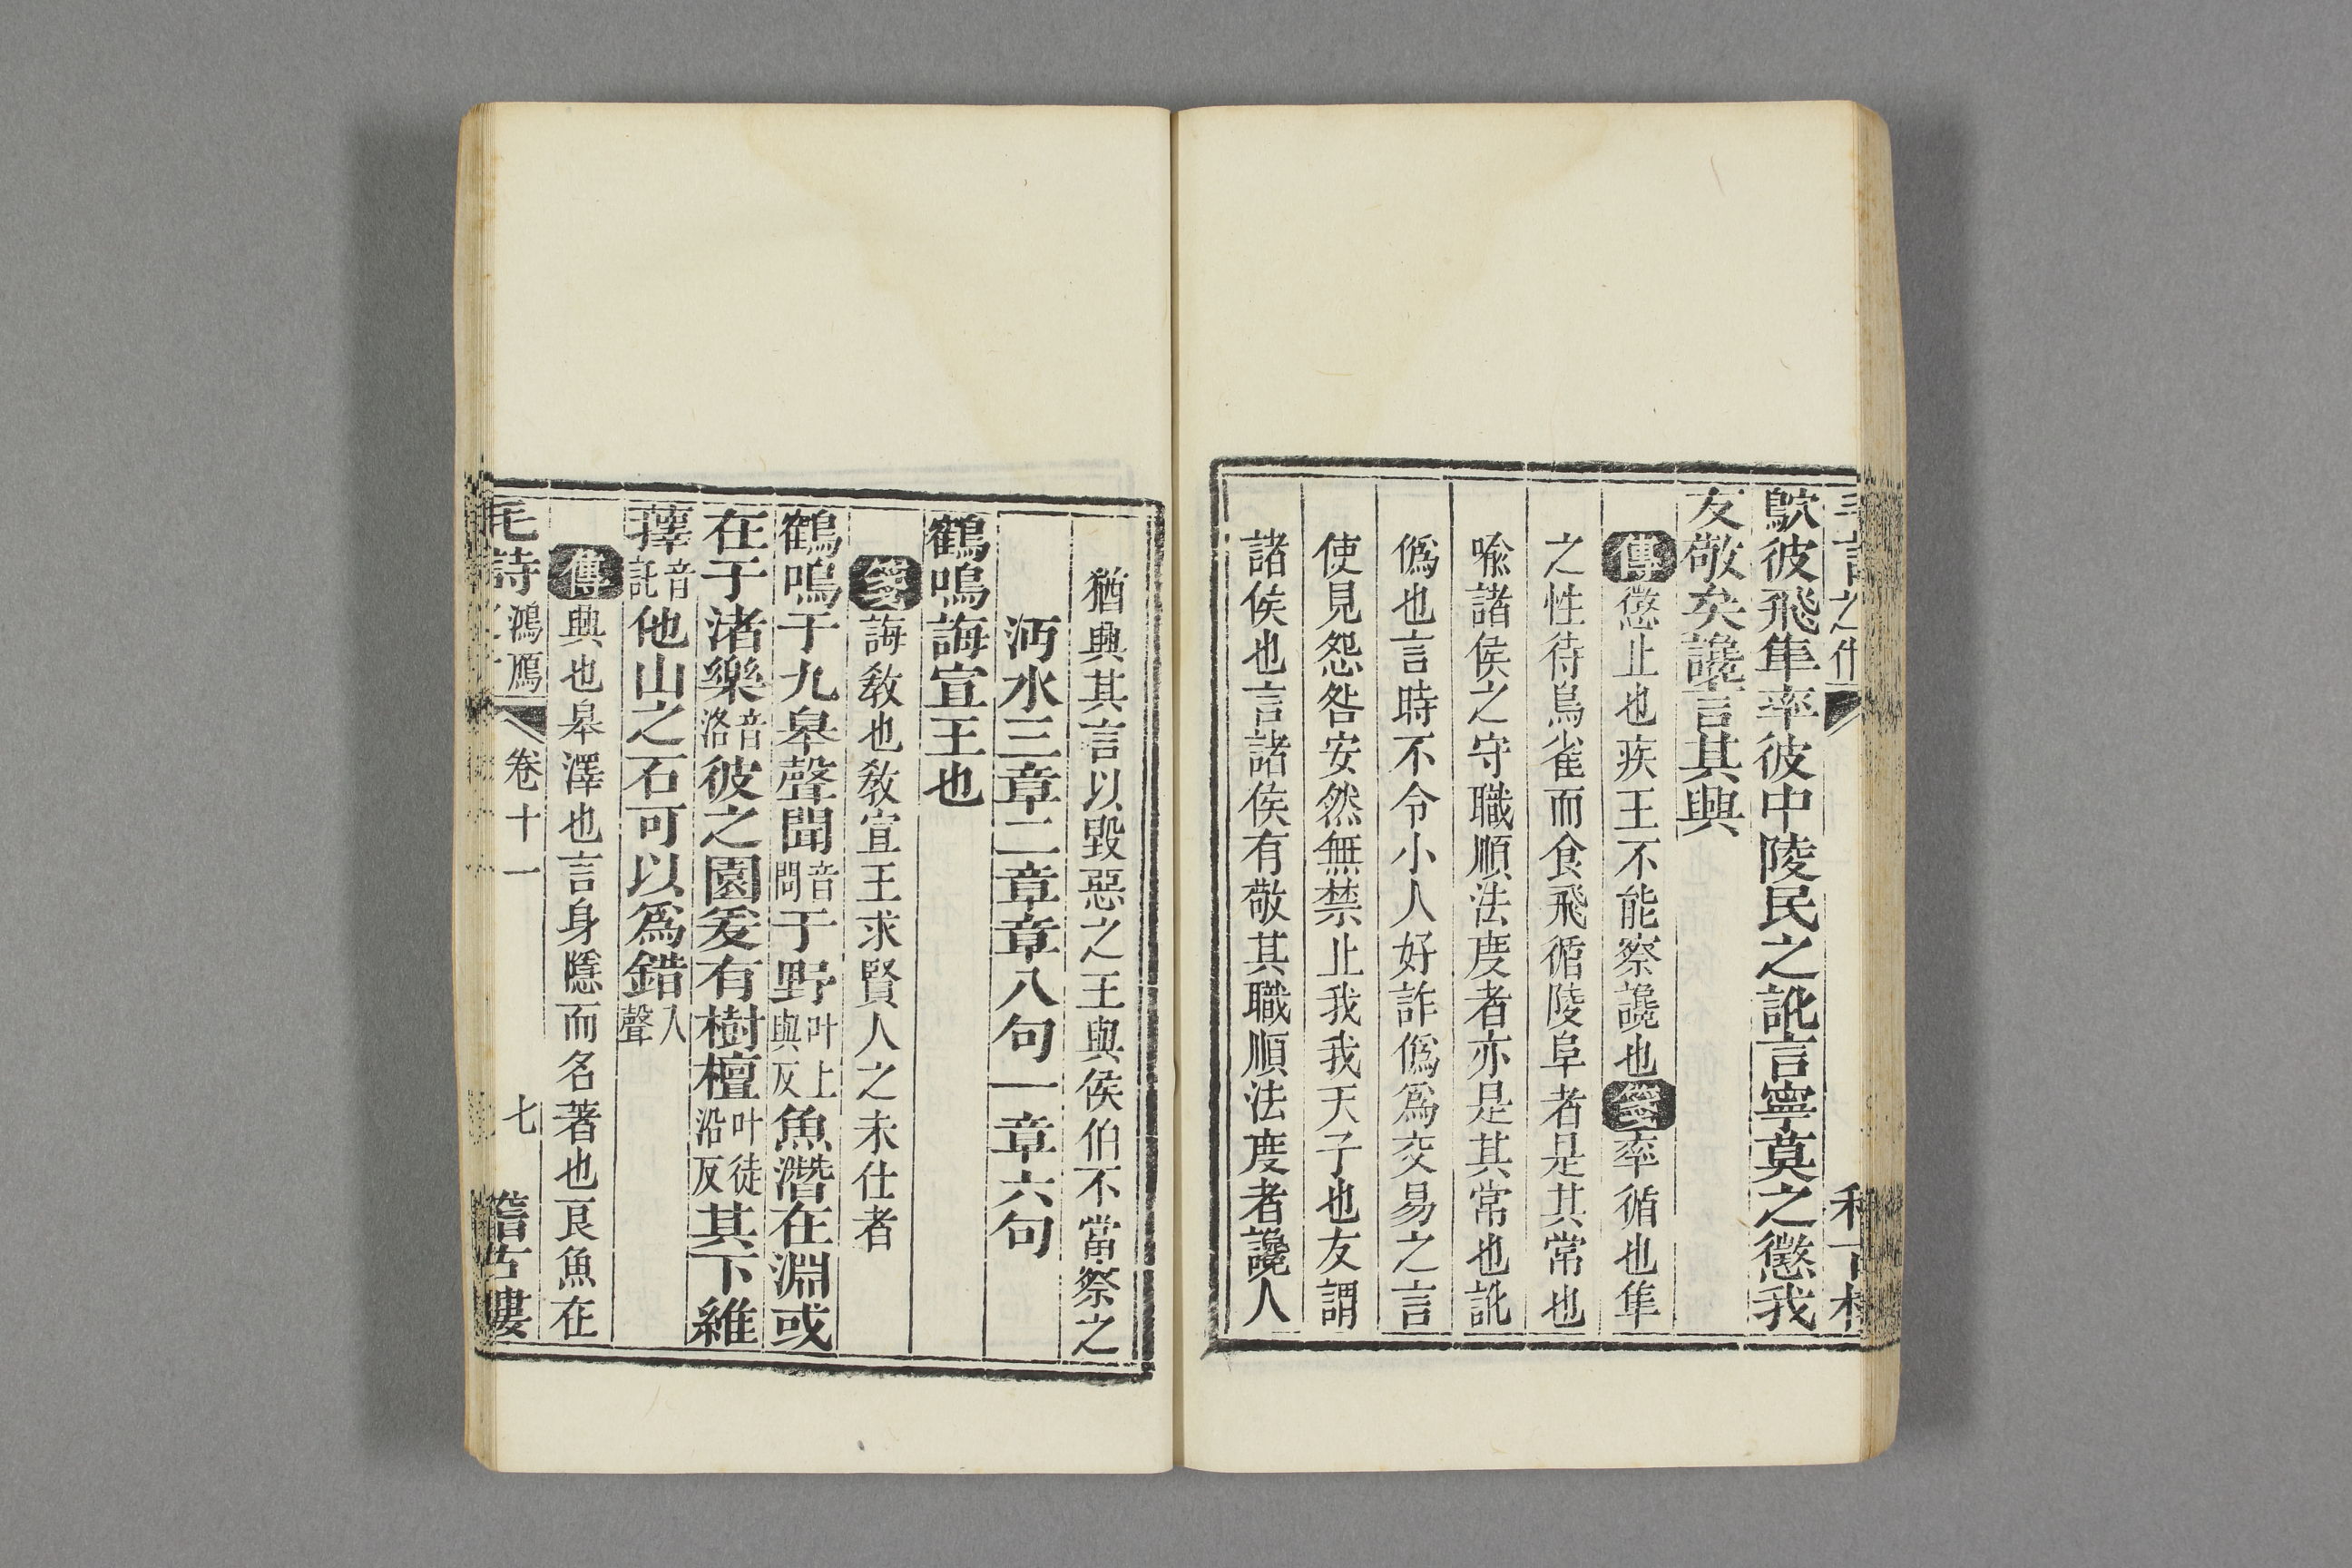 鴥彼飛隼率彼中陵民之訛言寧莫之懲我
友敬矣讒言其興
傳懲止也疾王不能察讒也箋率循也隼
之性待鳥雀而食飛循陵阜者是其常也
喩諸侯之守職順法度者亦是其常也訛
僞也言時不令小人好詐僞爲交易之言
使見怨咎安然無禁止我我天子也友謂
諸侯也言諸侯有敬其職順法度者讒人
猶興其言以毀惡之王與侯伯不當察之
沔水三章二章章八句一章六句
鶴鳴誨宣王也
箋誨教也教宣王求賢人之未仕者
鶴鳴于九皋聲聞音問于野叶上與反魚潛在淵或
在于渚樂音洛彼之園爰有樹檀叶徒沿反其下維
蘀音託他山之石可以爲錯入聲
傳興也皋澤也言身隱而名著也良魚在
毛詩 鴻鴈 卷十一 七